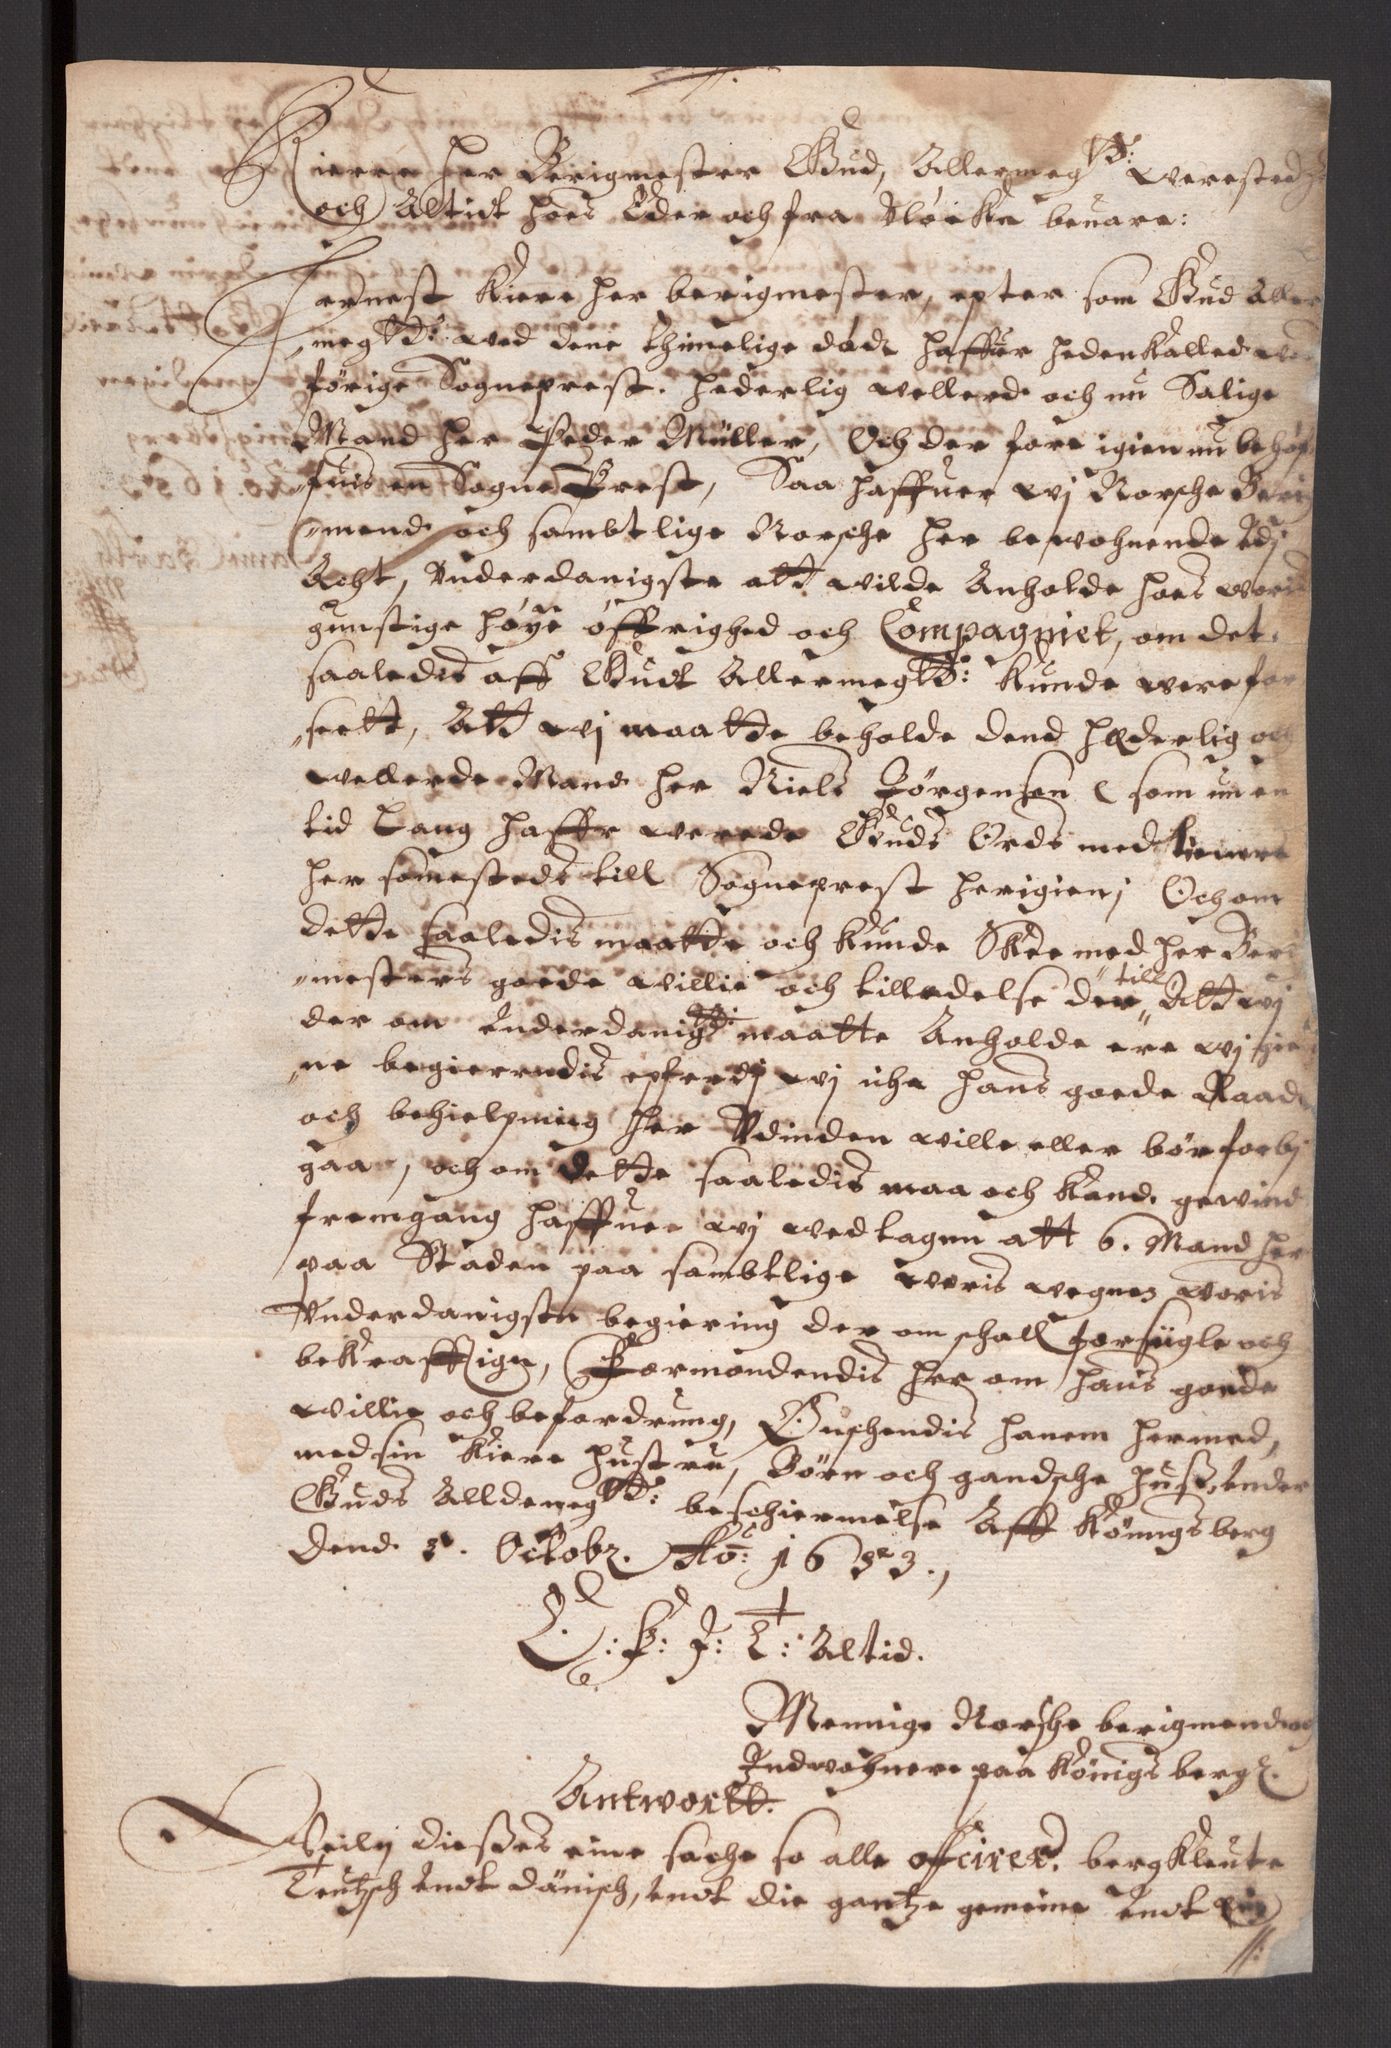 Kierre her Berigmester Gud, Allermegtt: werested
och Altidt hoes Eder och fra Uløcke beuare:
Fernest Kiere her berigmester, epter som Gud Aller
megtt: wed dene thimelige død haffuer hedenkalled wor
förige Sogneprest. hederlig wellerd och nu Salige
Mand her Peder Müller, Och der fore igien nu behøf
fuis en Sogne Prest, Saa haffuer wj Norsche Berig
mend och sambtlige Norsche her bewohnende udj
Acht, Underdanigste att wilde Anholde hoes woris
gunstige høye öffrighed och Compagniet, om det
saaledis aff Gudt Allermegtt: kunde were for
seett, Att wj maatte beholde dend hæderlig och
wellerde Mand her Niels Jörgensen (som nu en
tid Lang haffr werede Guds Ords med tienere
her sammesteds till Sogneprest herigien; Och om
dette saaledis maatte och kunde Skee med her Berig
mesters goede willie och tilladelse der till Att wj
der om underdanigtt: maatte Anholde ere wj gier
ne begierendis epterdj wj iche hans goede Raad
och behielpning her Udinden wille eller bör forbj
gaa, och om dette saaledis maa och kand. gewind
fremgang haffuer wj wedtagen att 6. Mand her
paa Staden paa sambtlige woris wegnes woris
Underdanigste begiering der om schall forsigle och
bekrafftige, Formondendis her om hans goede
willie och befordrung, Önschendis hanem hermed,
med sin Kiere hustru, Börn och gandsche huss, under
Guds Alldmegtt: beschiermelse Aff Königsberg
Dend 3. Octobr. Ao: 1653.,
E: k: f: T: Altid.
Mennige Norsche berigmend och
Indwohnere paa Königs berg.
Antwortt.
Weiln dießes eine sache so alle officirer. bergkleute
Teutzsch undt dänisch, undt die gantze gemeine undt ein